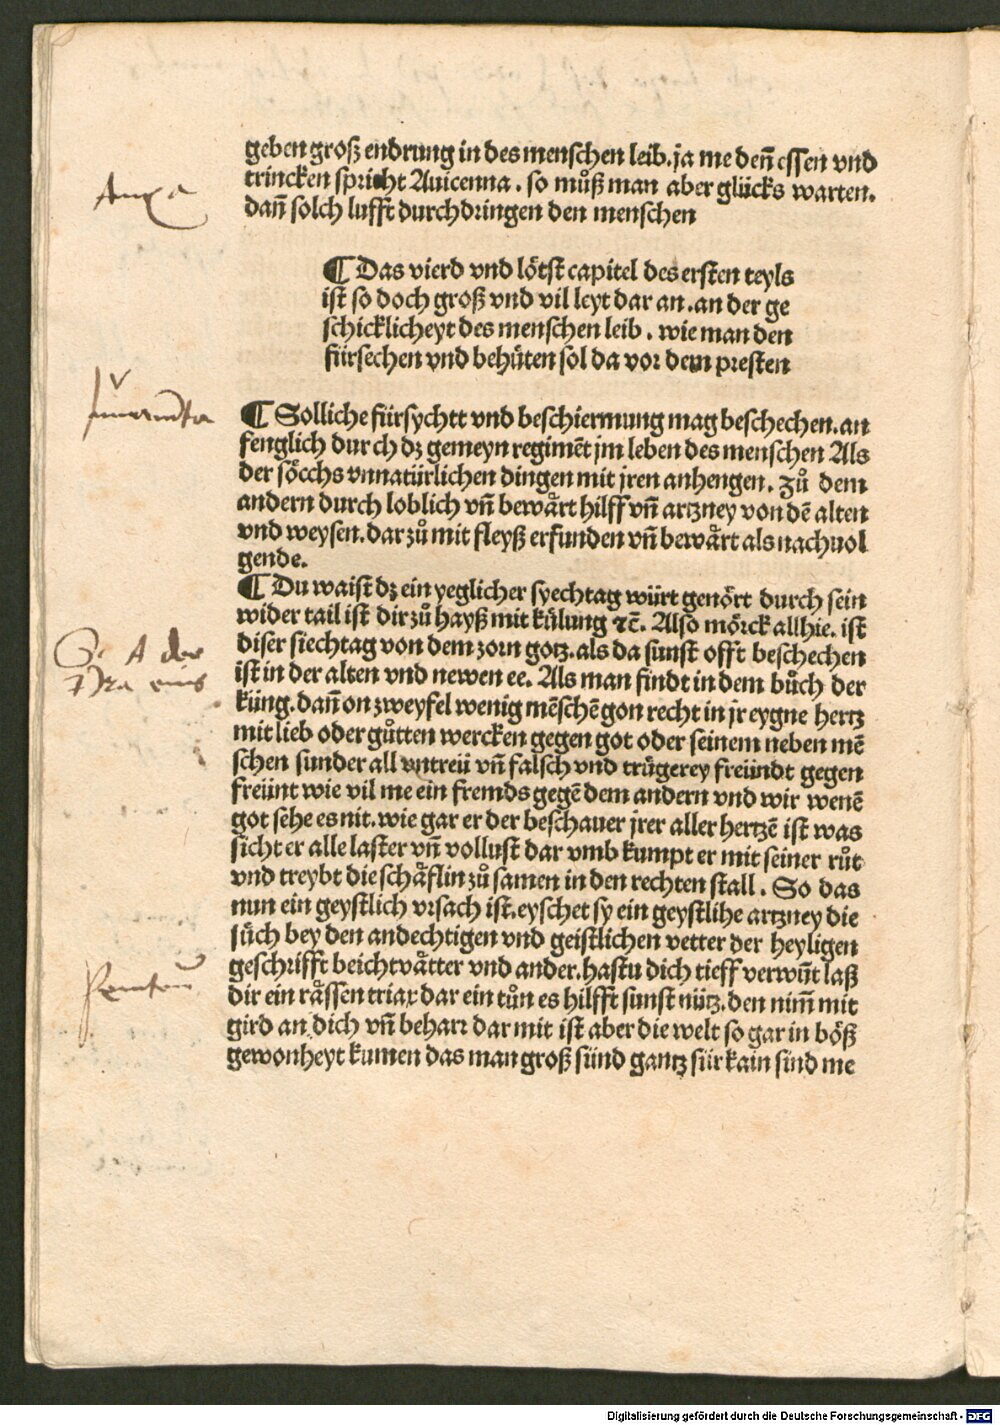 geben groß endrung in des menschen leib. ja me deñ essen vnd
trincken spricht Auicenna. so můß man aber glücks warten.
dañ solch lufft durchdringen den menschen
¶ Das vierd vnd lötst capitel des ersten teyls
ist so doch groß vnd vil leyt dar an. an der ge
schicklicheyt des menschen leib. wie man den
fürsechen vnd behüten sol da vor dem presten
¶ Solliche fürsychtt vnd beschiermung mag beschechen. an
fenglich durch dz gemeyn regimēt jm leben des menschen Als
der söcchs vnnatürlichen dingen mit jren anhengen. zů dem
andern durch loblich vñ bewärt hilff vñ artzney von dē alten
vnd weysen. dar zů mit fleyß erfunden vñ bewärt als nachuol
gende.
¶ Du waist dz ein yeglicher syechtag würt genört durch sein
wider tail ist dir zů hayß mit külung ⁊c̄. Also mörck allhie. ist
diser siechtag von dem zorn gotz. als da sunst offt beschechen
ist in der alten vnd newen ee. Als man findt in dem bůch der
küng. dañ on zweyfel wenig mēschē gon recht in jr eygne hertz
mit lieb oder gůtten wercken gegen got oder seinem neben mē
schen sunder all vntreü vñ falsch vnd trügerey freündt gegen
freünt wie vil me ein fremds gegē dem andern vnd wir wenē
got sehe es nit. wie gar er der beschauer jrer aller hertzē ist was
sicht er alle laster vñ vollust dar vmb kumpt er mit seiner růt
vnd treybt die schäflin zů samen in den rechten stall. So das
nun ein geystlich vrsach ist. eyschet sy ein geystlihe artzney die
sůch bey den andechtigen vnd geistlichen vetter der heyligen
geschrifft beichtvätter vnd ander. hastu dich tieff verwūt laß
dir ein rässen triax dar ein tůn es hilfft sunst nütz. den nim̄ mit
gird an dich vñ beharr dar mit ist aber die welt so gar in böß
gewonheyt kumen das man groß sünd gantz für kain sind me
Digitalisierung gefördert durch die Deutsche Forschungsgemeinschaft - DFG